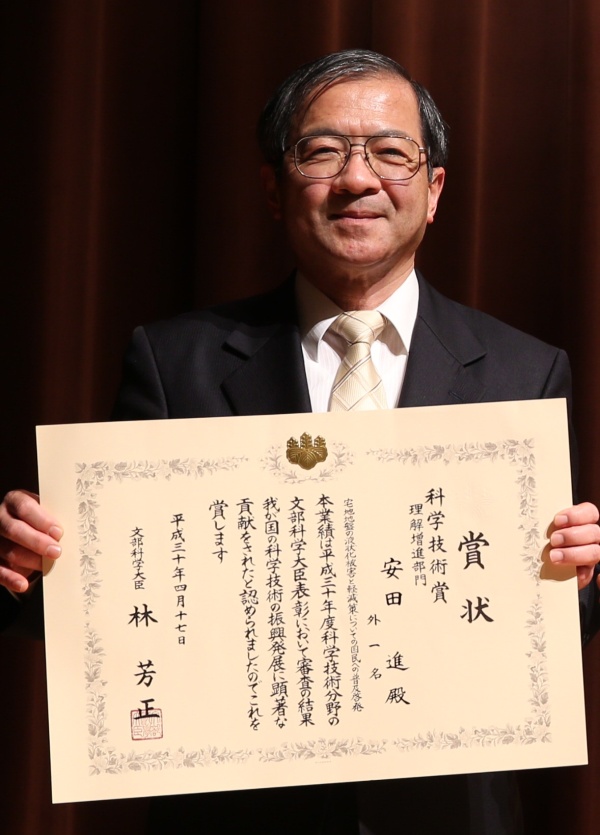 賞状
科学技術賞
理解増進部門
安田 進 殿
外一名
宅地地盤の液状化被害と軽減策についての国民への普及啓発
本業績は平成三十年度科学技術分野の
文部科学大臣表彰において審査の結果
我が国の科学技術の振興発展に顕著な
貢献をされたと認められましたのでこれを
賞します
平成三十年四月十七日
文部科学大臣 林 芳正